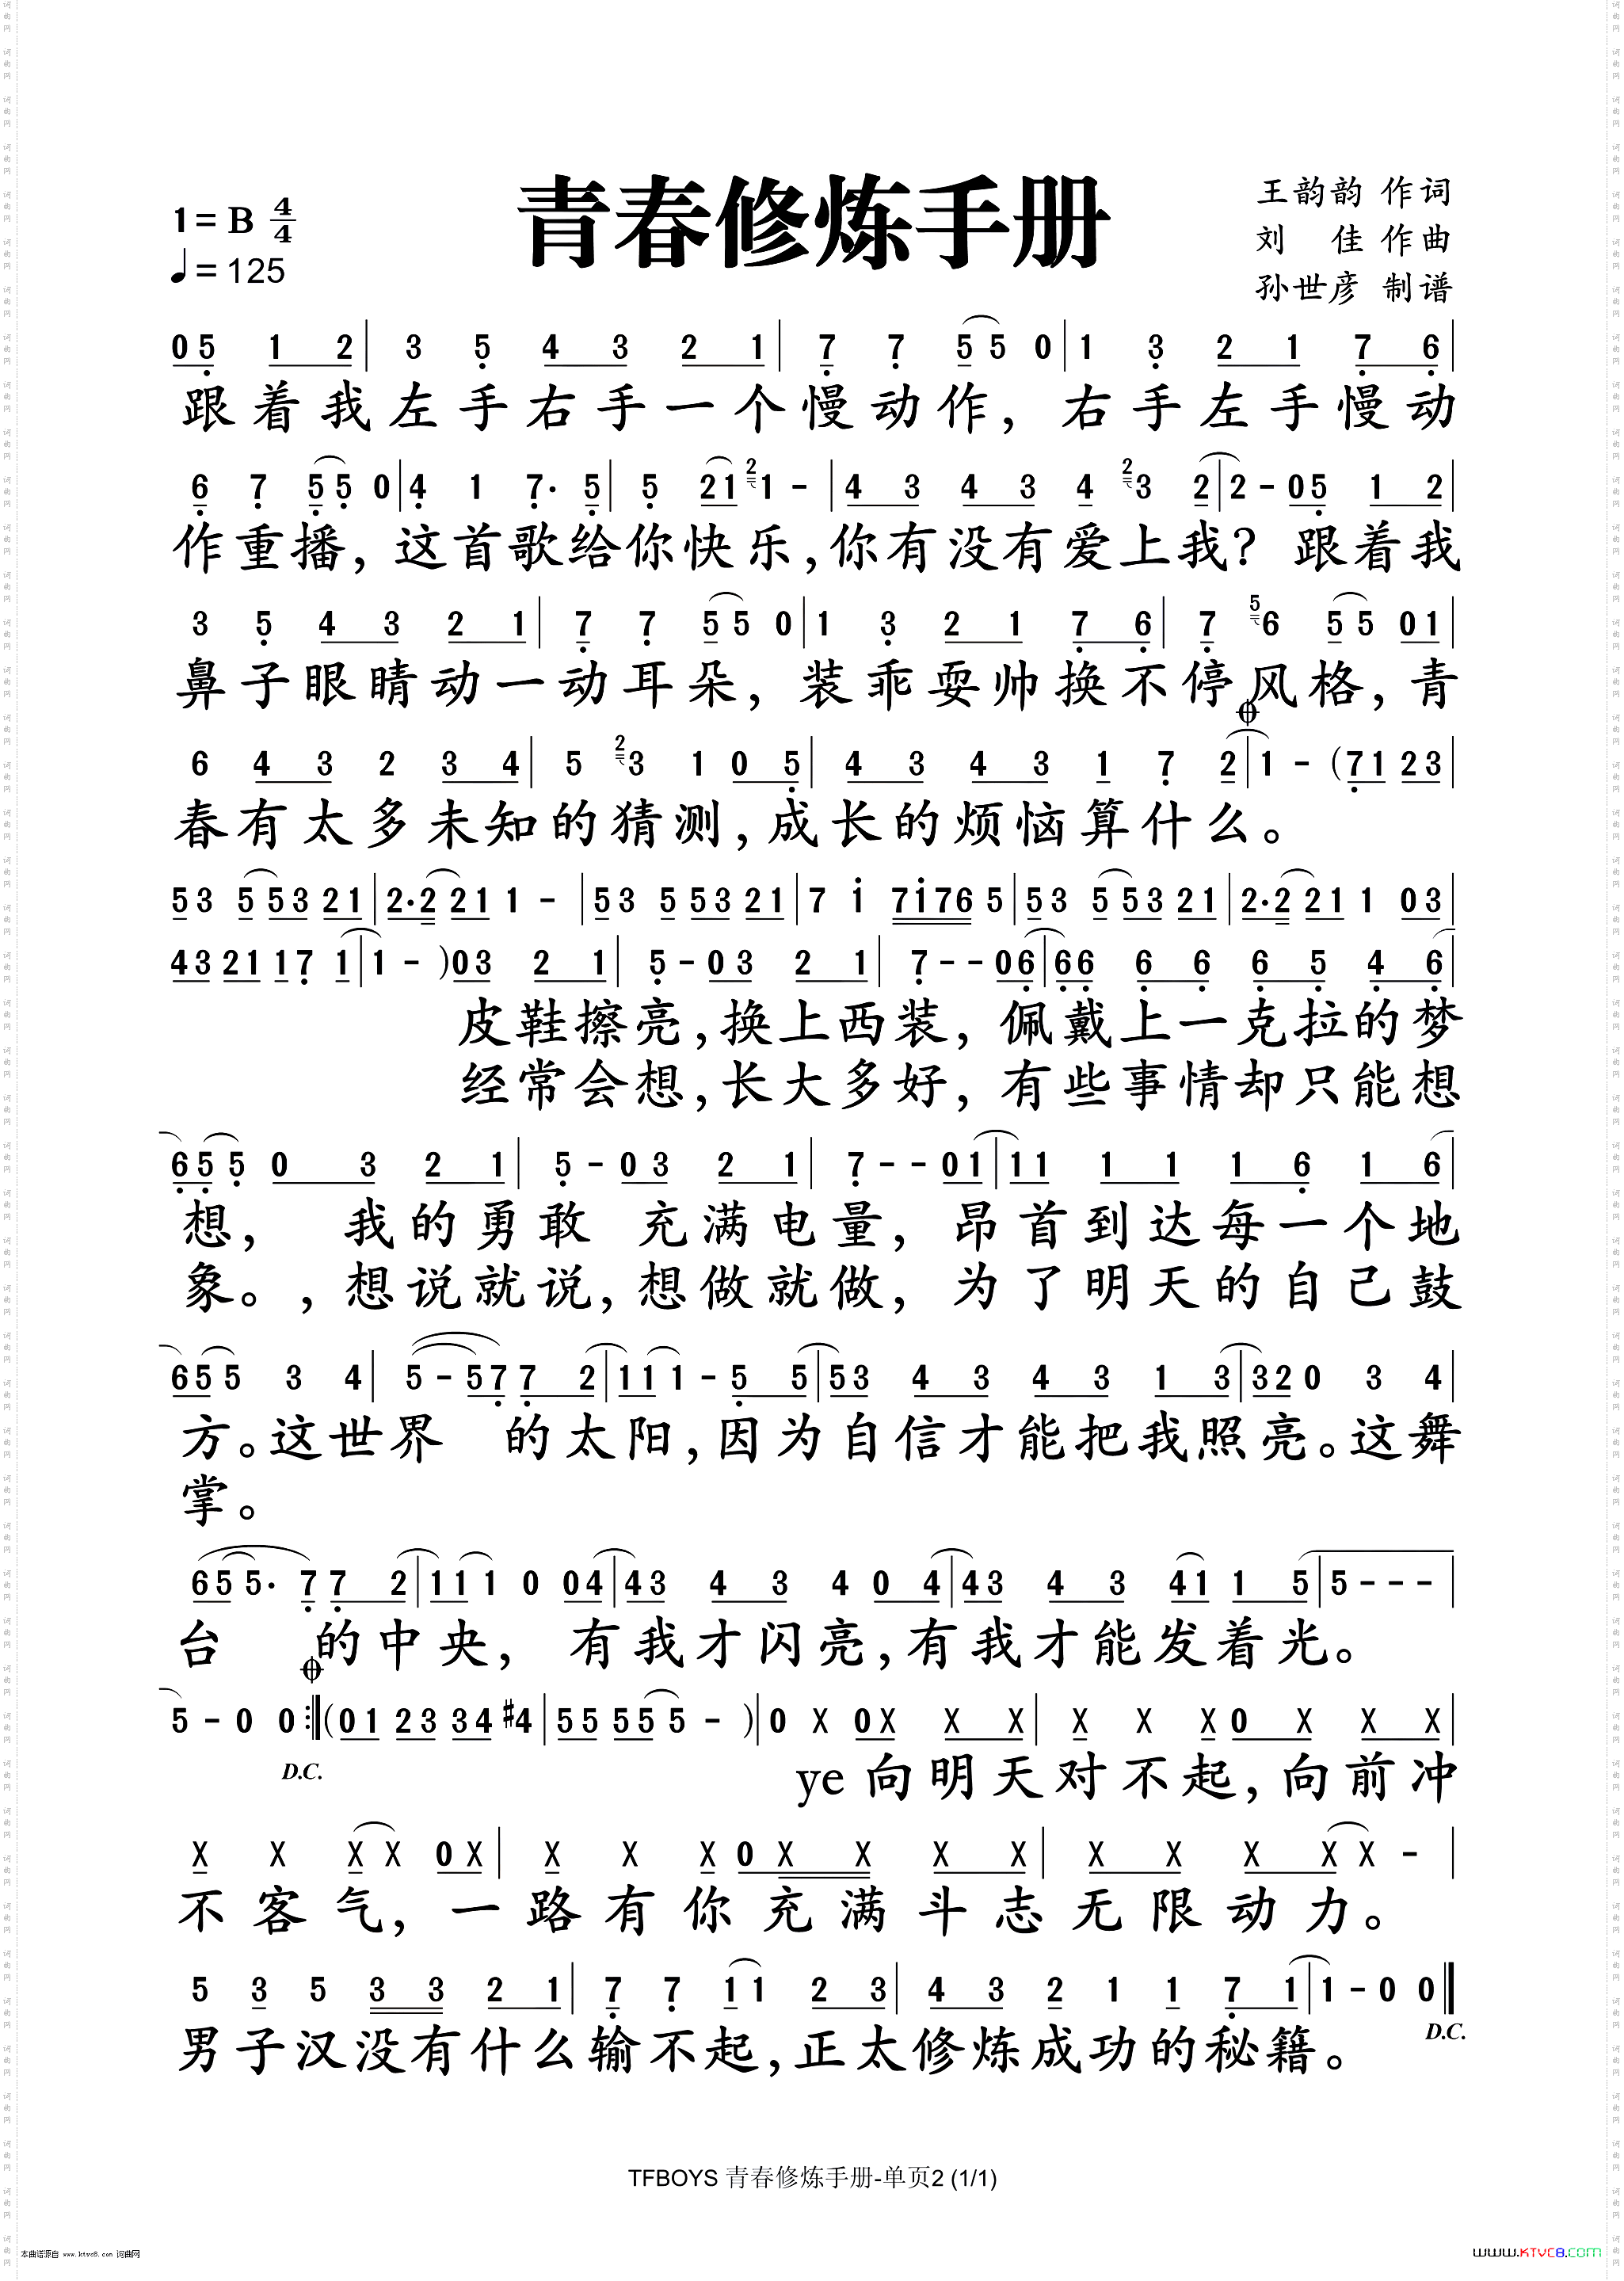 青春修炼手册
1 = B 4/4
♩ = 125
王韵韵 作词
刘 佳 作曲
孙世彦 制谱
0 5 1 2 | 3 5 4 3 2 1 | 7 7 5 5 0 | 1 3 2 1 7 6 |
跟着我左手右手一个慢动作，右手左手慢动
6 7 5 5 0 | 4 1 7· 5 | 5 2 1 2 1 - | 4 3 4 3 4 2 3 2 | 2 - 0 5 1 2 |
作重播，这首歌给你快乐，你有没有爱上我？跟着我
3 5 4 3 2 1 | 7 7 5 5 0 | 1 3 2 1 7 6 | 7 5 6 5 5 0 1 |
鼻子眼睛动一动耳朵，装乖耍帅换不停风格，青
6 4 3 2 3 4 | 5 2 3 1 0 5 | 4 3 4 3 1 7 2 | 1 - ( 7 1 2 3 |
春有太多未知的猜测，成长的烦恼算什么。
5 3 5 5 3 2 1 | 2· 2 2 1 1 - | 5 3 5 5 3 2 1 | 7 1 7 1 7 6 5 | 5 3 5 5 3 2 1 | 2· 2 2 1 1 0 3 |
4 3 2 1 1 7 1 | 1 - ) 0 3 2 1 | 5 - 0 3 2 1 | 7 - - 0 6 | 6 6 6 6 6 5 4 6 |
皮鞋擦亮，换上西装，佩戴上一克拉的梦
经常会想，长大多好，有些事情却只能想
6 5 5 0 3 2 1 | 5 - 0 3 2 1 | 7 - - 0 1 | 1 1 1 1 1 6 1 6 |
想， 我的勇敢 充满电量，昂首到达每一个地
象。，想说就说，想做就做，为了明天的自己鼓
6 5 5 3 4 | 5 - 5 7 7 2 | 1 1 1 - 5 5 | 5 3 4 3 4 3 1 3 | 3 2 0 3 4 |
方。这世界 的太阳，因为自信才能把我照亮。这舞
掌。
6 5 5· 7 7 2 | 1 1 1 0 0 4 | 4 3 4 3 4 0 4 | 4 3 4 3 4 1 1 5 | 5 - - - |
台 的中央，有我才闪亮，有我才能发着光。
5 - 0 0 :‖ ( 0 1 2 3 3 4 #4 | 5 5 5 5 5 - ) | 0 X 0 X X X | X X X 0 X X X |
D.C.
ye 向明天对不起，向前冲
X X X X 0 X | X X X 0 X X X X | X X X X X - |
不客气，一路有你充满斗志无限动力。
5 3 5 3 3 2 1 | 7 7 1 1 2 3 | 4 3 2 1 1 7 1 | 1 - 0 0 ‖
D.C.
男子汉没有什么输不起，正太修炼成功的秘籍。
TFBOYS 青春修炼手册-单页2 (1/1)
本曲谱源自 www.ktvc8.com 词曲网
www.KTVC8.com